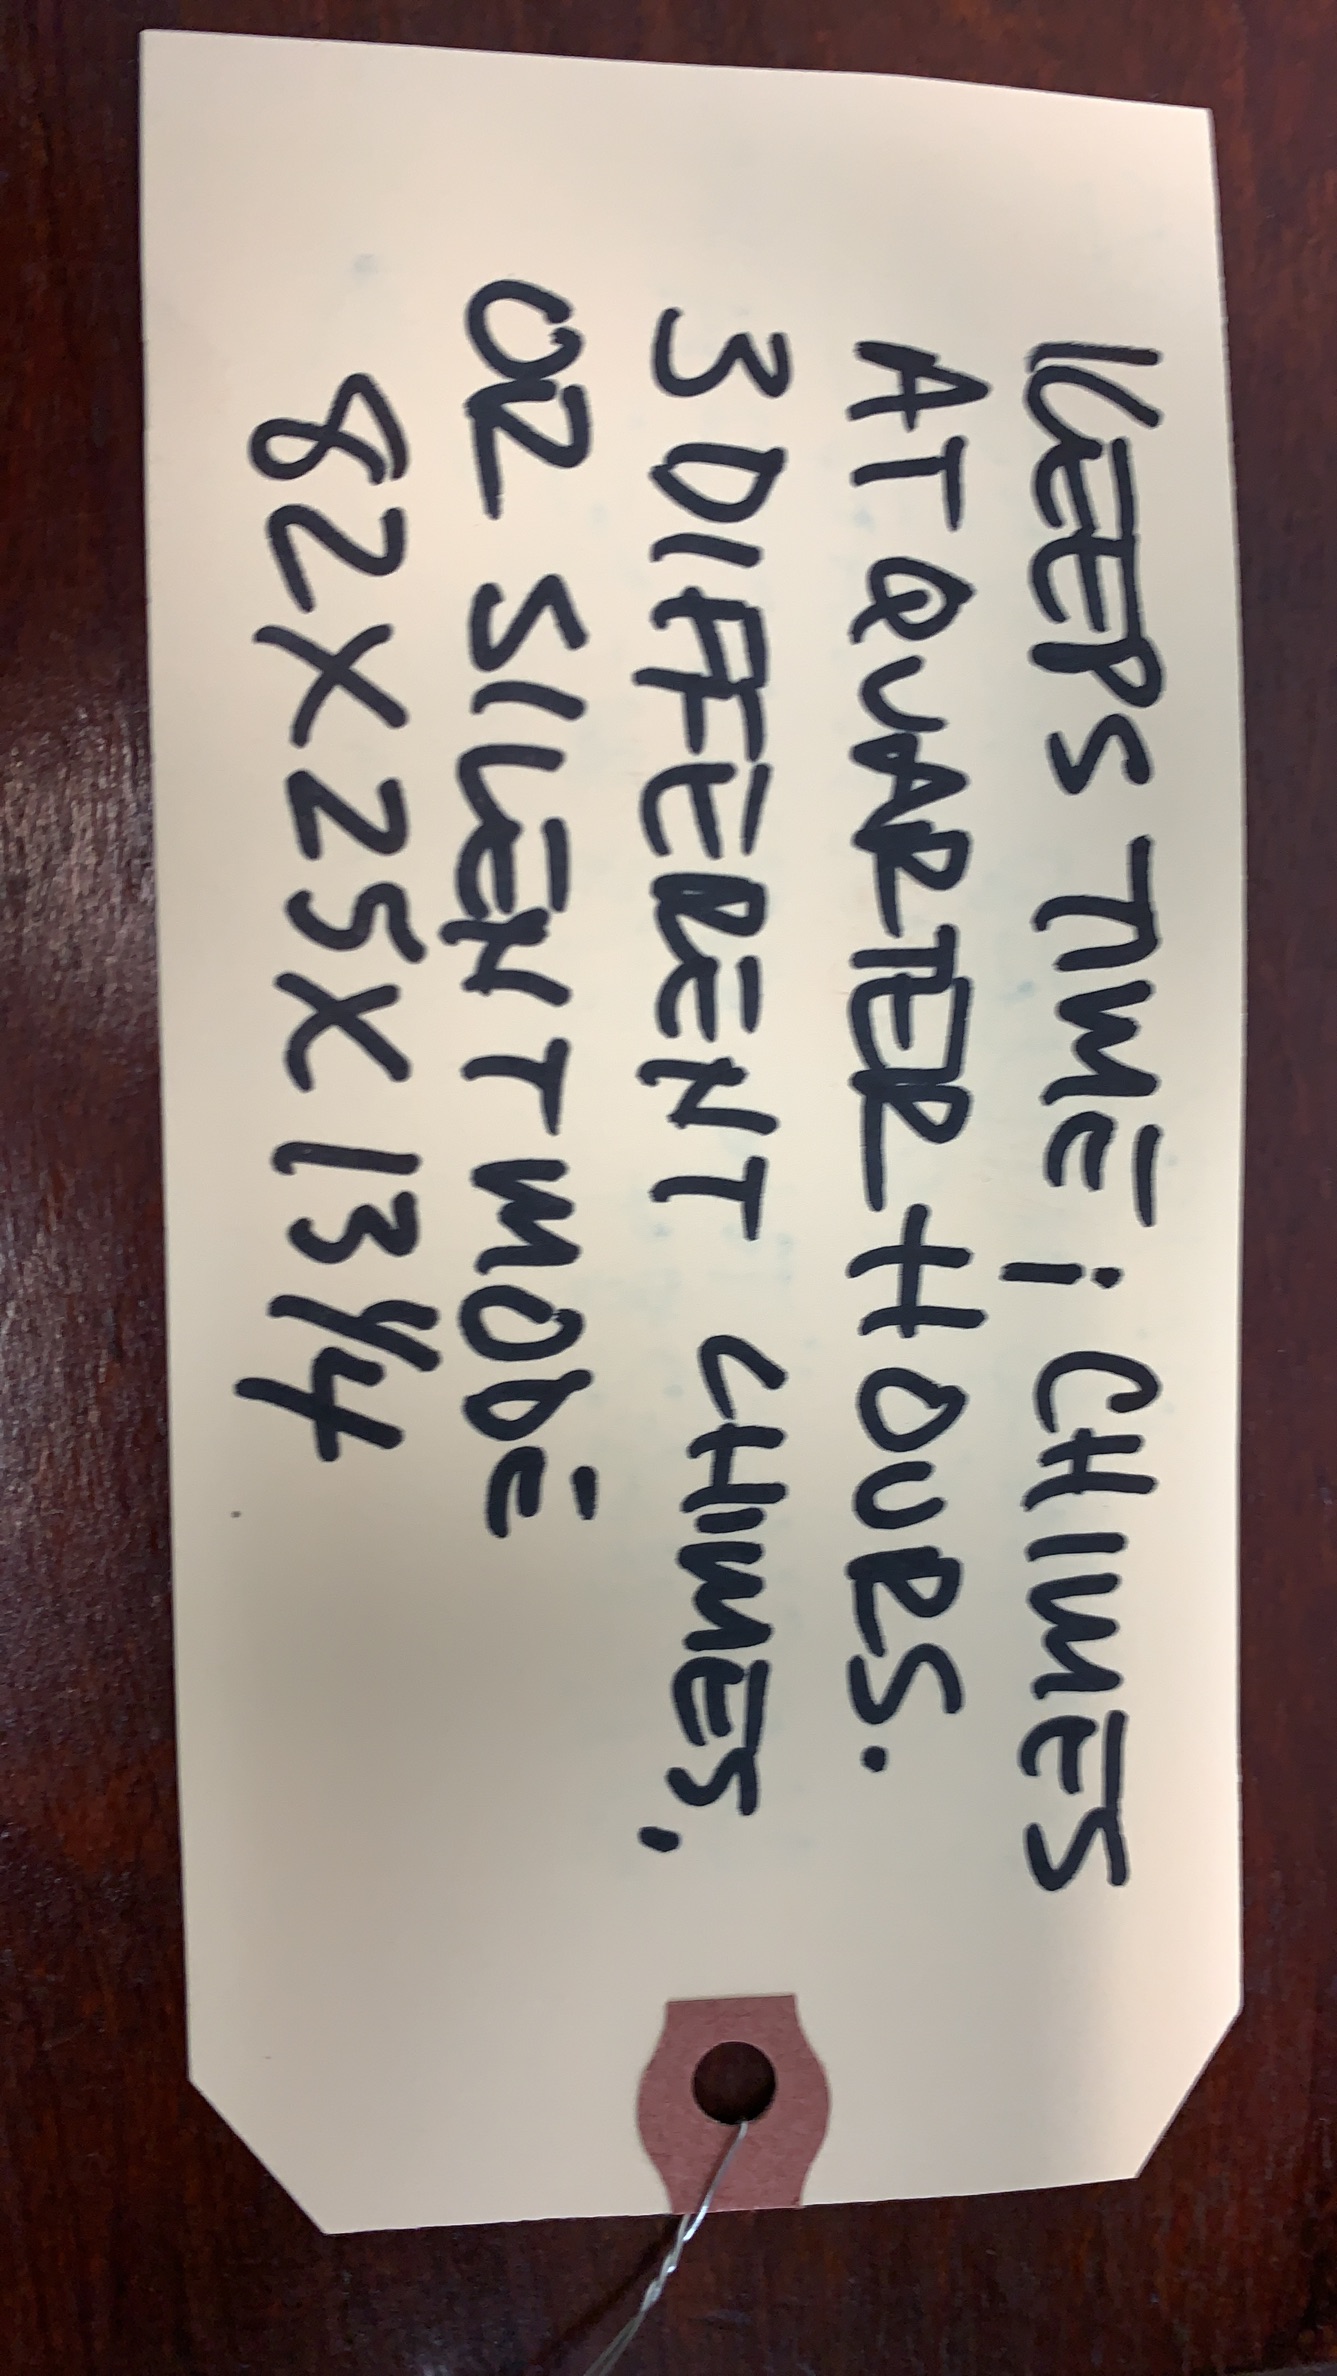 KEEPS TIME; CHIMES
AT QUARTER HOURS.
3 DIFFERENT CHIMES,
OR SILENT MODE
82X25X13 1/4